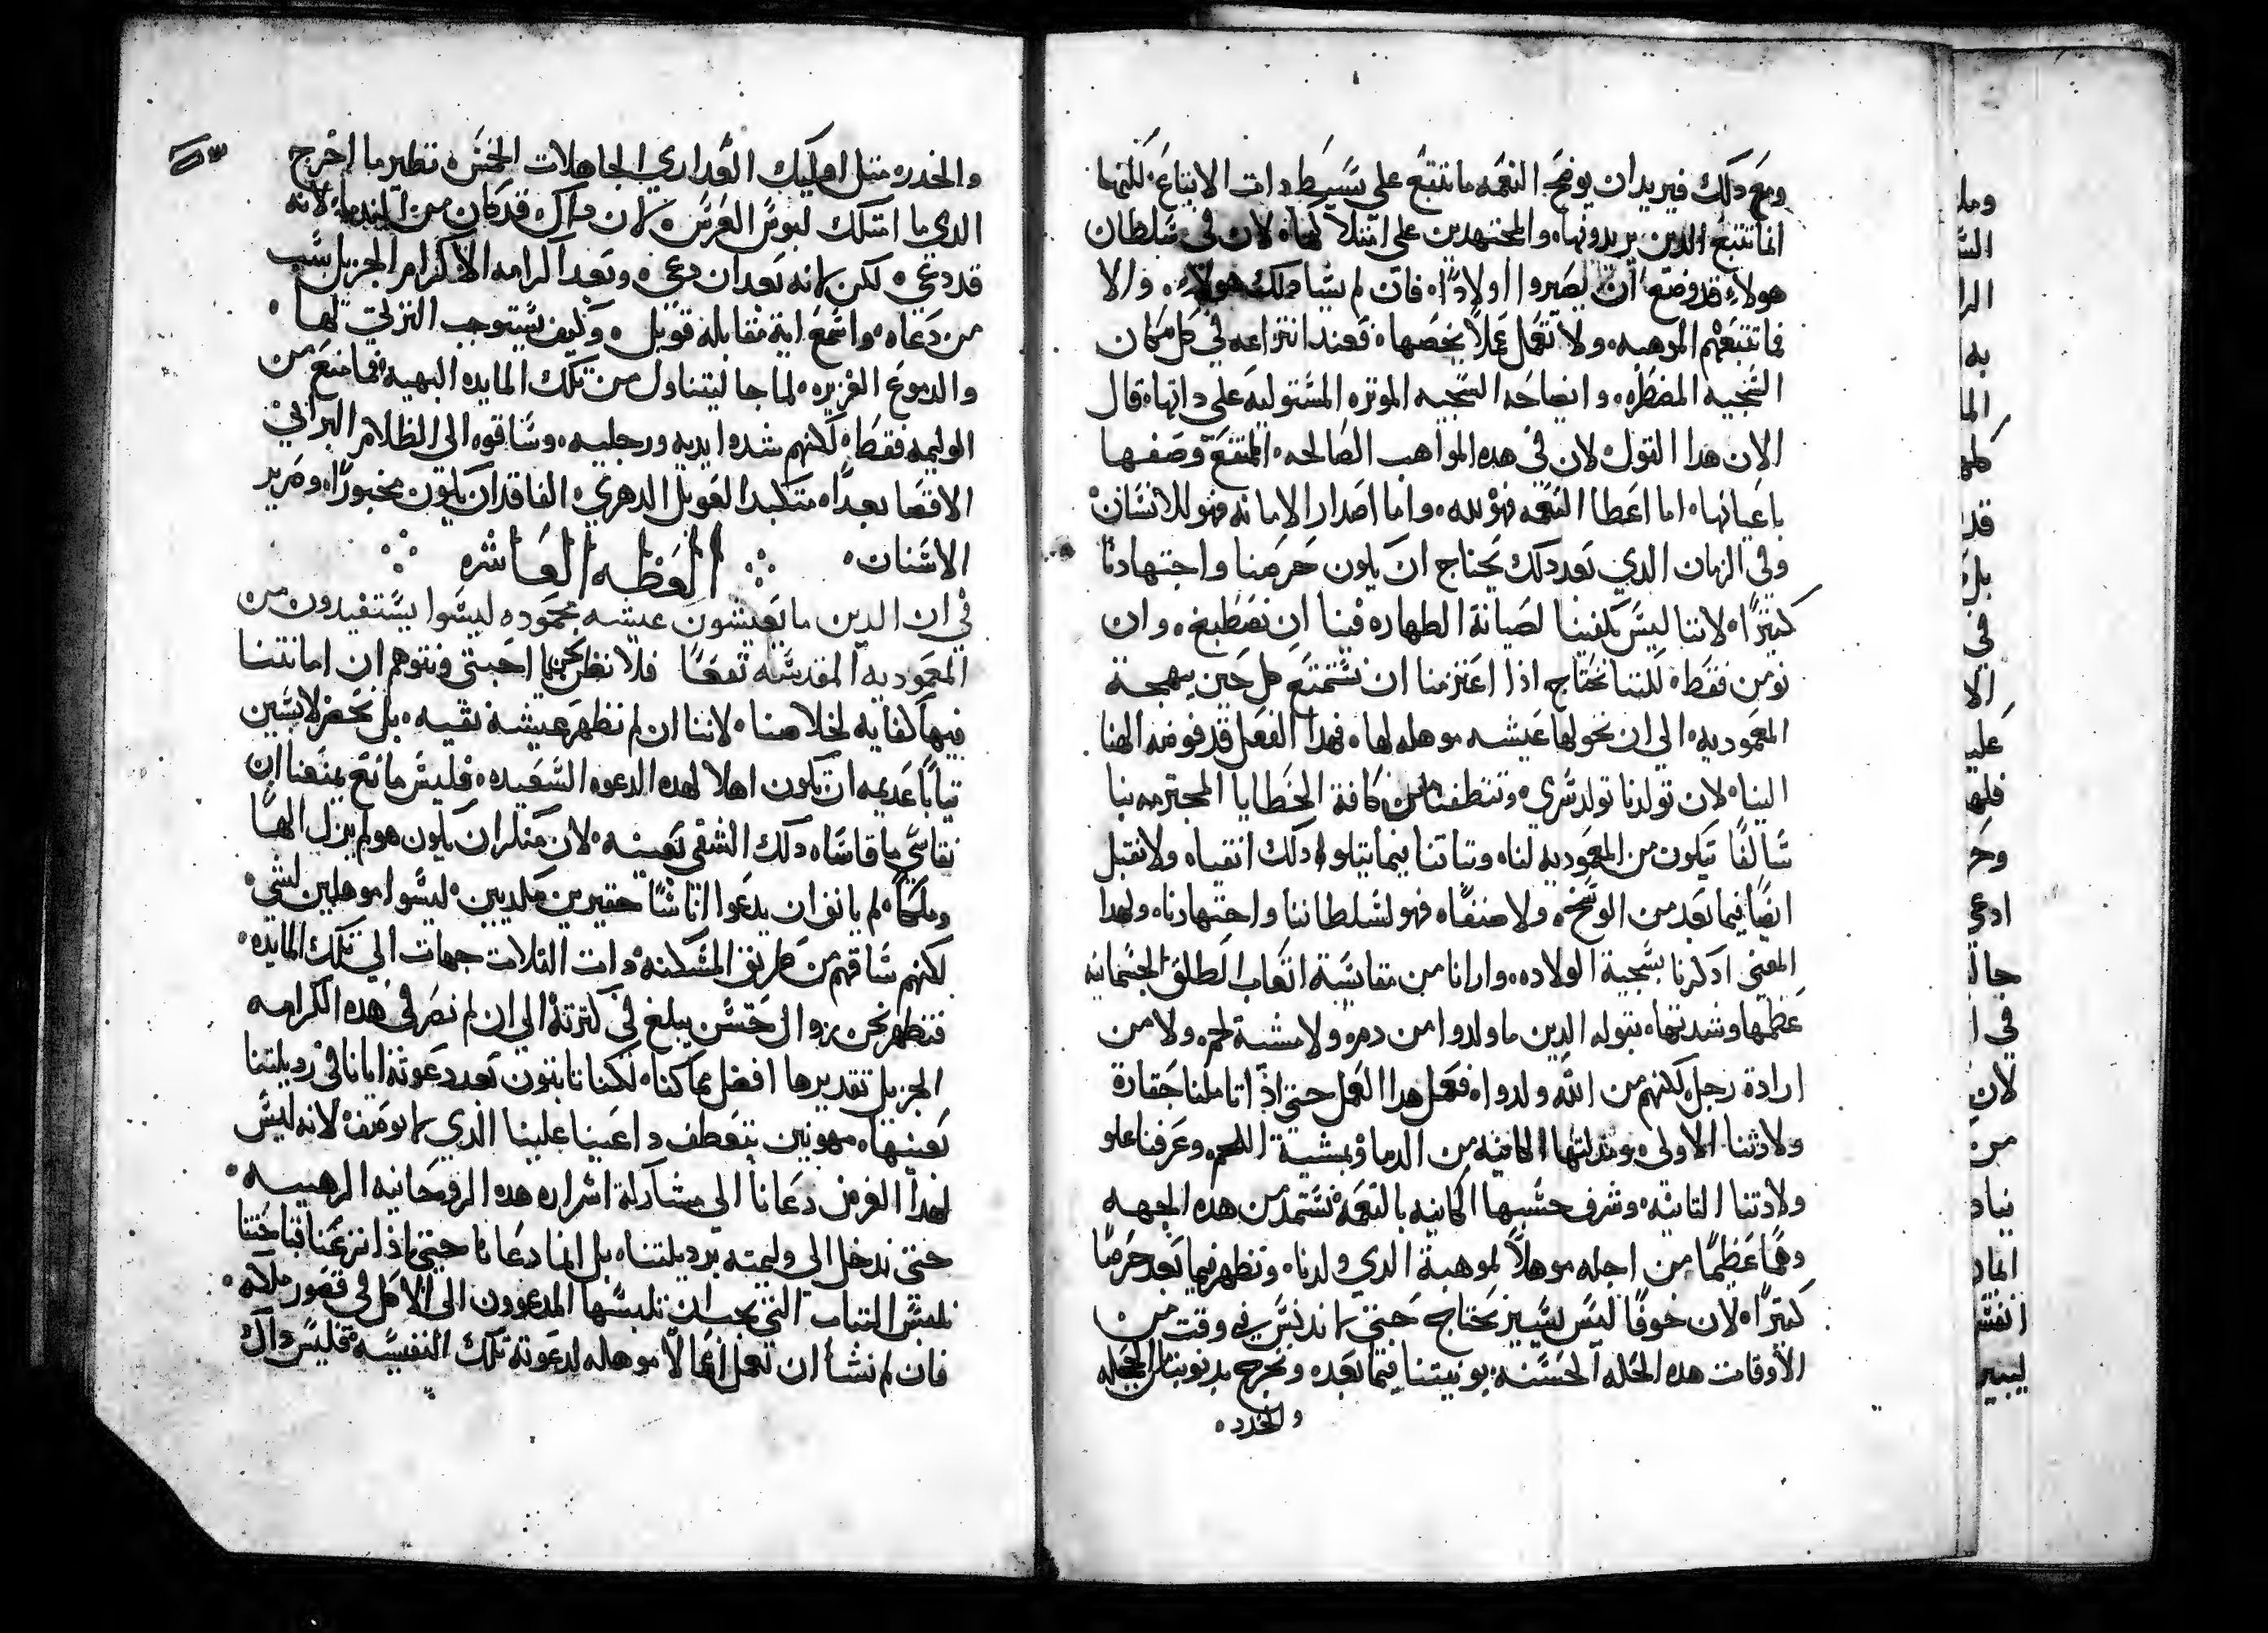 ومع دلك فيريد ان يوضح النعمه ما تتبع على بسيط دات الاتباع، لكنها
انما تتبع الدين يريدونها، والمجتهدين على امتلاكها، لان فى سلطان
هولاء قد وضع ان يصيروا اولادًا، فان لم يشا دلك هولاء، والا
فما تتبعهم الموهبه، ولا تعمل عملاً يخصها، فعند انتزاعه في كل مكان
السجيه المضطره، وايضاحه السجيه الموتره المستوليه على داتها، قال
الان هدا القول، لان في هده المواهب الصالحه، الممتنع وصفها
باعيانها، اما اعطا النعمه فهو لله، واما اصدار الامانه فهو للانسان
وفي الزمان الدي بعد دلك يحتاج ان يكون حرصنا واجتهادنا
كتيرًا، لاننا ليس يكفينا لصيانة الطهاره فينا ان نصطبغ، وان
نومن فقط، لكننا نحتاج، اذا اعتزمنا ان نستمتع كل حين ببهجة
المعموديه، الي ان نخولها عيشه موهله لها، فهدا الفعل قد فوضه الهنا
الينا، لان تولدنا تولد سري، وتنظفنا من كافة الخطايا المجترمه بنا
سالفًا يكون من المعموديه لنا، وتباتنا فيما يتلو دلك انقيا، ولا نقبل
ايضًا فيما بعد من الوسخ، ولا صنفًا، فهو لسلطاننا واجتهادنا، ولهدا
المعنى ادكرنا بسجية الولاده، وارانا من مقايسة اتعاب الطلق الجسمانيه
عظمها وشدتها، بقوله الدين ما ولدوا من دم، ولا مشية لحم، ولا من
ارادة رجل، لكنهم من الله ولدوا، فعمل هدا العمل حتى اذا تاملنا حقارة
ولادتنا الاولى، ومدلتها الكاينه من الدما وبمشية اللحم، وعرفنا علو
ولادتنا التانيه، وشرف حسبها الكاينه بالنعمه نستمد من هده الجهه
وهمًا عظيمًا من اجله موهلاً لموهبة الدي ولدنا، ونظهر فيما بعد حرصًا
كتيرًا، لان خوفًا ليس يسير نحتاج حتى لا ندنس في وقت من
الأوقات هده الحله الحسنه بونيتنا فيما بعده ونخرج بدنوبنا من الحجله
والخدر،
٥٣
والخدر، متل اوليك العداري الجاهلات الخمس، نظير ما اخرج
الدي ما امتلك لبوس العرس، لان داك قد كان من الندما، لانه
قد دعي، لكن لانه بعد ان دعي، وبعد اكرامه الاكرام الجزيل شب
من دعاه، واسمع اية مقابله قوبل، وكيف يستوجب الترتي لها،
والدموع الغزيره، لما جا ليتناول من تلك المايده البهيه، فما منع من
الوليمه فقط، لكنهم شدوا يديه ورجليه، وساقوه الى الظلام البراني
الاقصا بعدًا، متكبدا العويل الدهري، الفاقد ان يكون مخبورًا، وصرير
الاسنان، العظه العاشره
في ان الدين ما يعيشون عيشه محموده ليسوا يستفيدون من
المعموديه المقدسه نفعًا فلا نظن نحن يا احبتي ونتوهم ان امانتنا
فيها كفايه لخلاصنا، لاننا ان لم نظهر عيشه نقيه، بل نحضر لابسين
تيابًا عديمه ان تكون اهلا لهده الدعوه السعيده، فليس مانع يمنعنا ان
نقاسي ما قاساه دلك الشقي بعينه، لان منكر ان يكون هو لم يزل الهًا
وملكًا، لم يانف ان يدعوا اناسًا حقيرين مكديين، ليسوا موهلين لشي،
لكنهم ساقهم من طريق المسكنه، دات التلات جهات الي تلك المايده،
فنظهر نحن زوال حسن يبلغ في كترته الي ان لم نصر في هده الكرامه
الجزيل تقديرها افضل مما كنا، لكنا تابتون بعد دعوته ايانا في رديلتنا
بعينها، مهونين بتعطف داعينا علينا الذي لا يوصف، لانه ليس
لهدا الغرض دعانا الي مشاركة اسراره هده الروحانيه الرهيبه،
حتى ندخل الي وليمته برديلتنا، بل انما دعانا حتى اذا نزعنا قباحتنا
نلبس التياب التي يجب ان تلبسها المدعوون الى الاكل في قصور ملكه،
فان لم نشأ ان نعمل اعمالاً موهله لدعوته تلك النفيسه، فليس داك